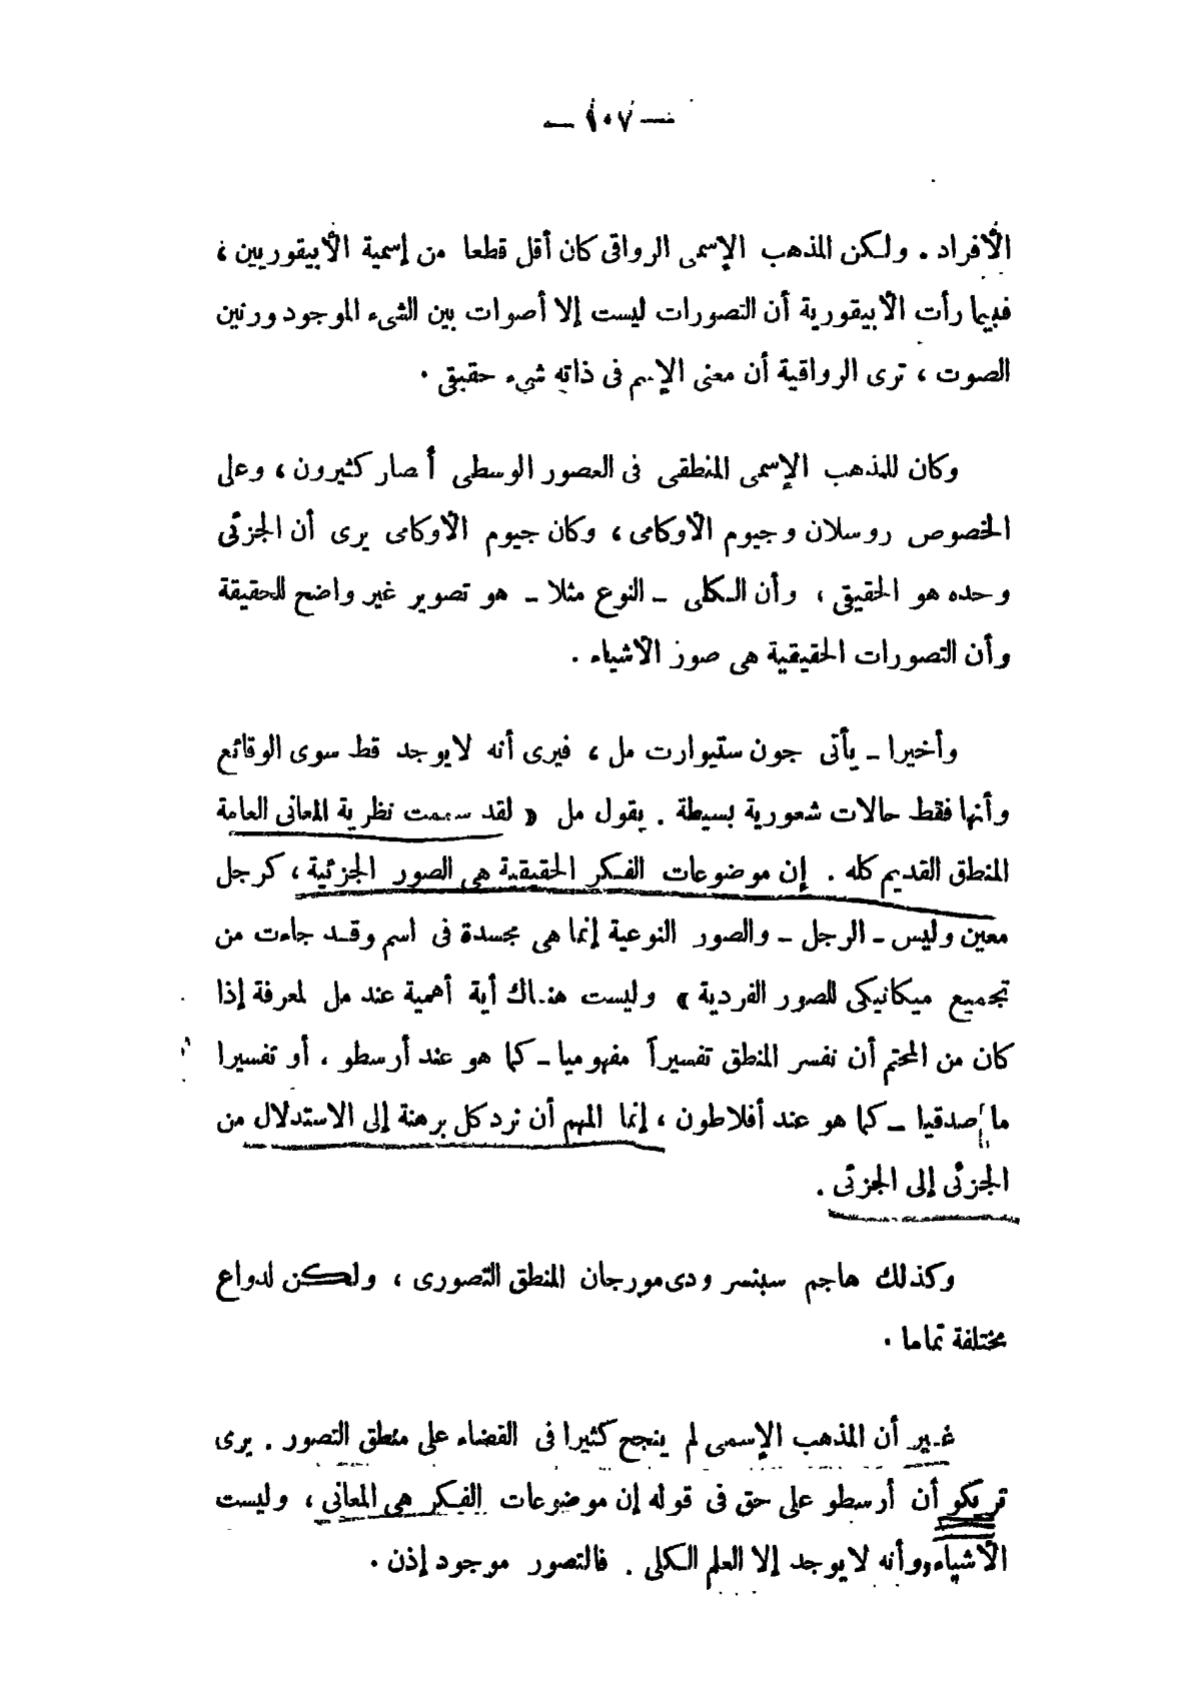 — ١٠٧ —
الأفراد . ولكن المذهب الإسمى الرواقى كان أقل قطعا من إسمية الأبيقوريين ،
فبينما رأت الأبيقورية أن التصورات ليست إلا أصوات بين الشىء الموجود ورنين
الصوت ، ترى الرواقية أن معنى الإسم فى ذاته شىء حقيقى .
وكان للمذهب الإسمى المنطقى فى العصور الوسطى أ صار كثيرون ، وعلى
الخصوص روسلان وجيوم الأوكامى ، وكان جيوم الأوكامى يرى أن الجزئى
وحده هو الحقيقى ، وأن الكلى – النوع مثلا – هو تصوير غير واضح للحقيقة
وأن التصورات الحقيقية هى صور الأشياء .
وأخيرا – يأتى جون ستيوارت مل ، فيرى أنه لا يوجد قط سوى الوقائع
وأنها فقط حالات شعورية بسيطة . يقول مل « لقد سممت نظرية المعانى العامة
المنطق القديم كله . إن موضوعات الفكر الحقيقية هى الصور الجزئية ، كرجل
معين وليس – الرجل – والصور النوعية إنما هى مجسدة فى اسم وقد جاءت من
تجميع ميكانيكى للصور الفردية » وليست هناك أية أهمية عند مل لمعرفة إذا
كان من المحتم أن نفسر المنطق تفسيراً مفهوميا – كما هو عند أرسطو ، أو تفسيرا
ما إصدقيا – كما هو عند أفلاطون ، إنما المهم أن نرد كل برهنة إلى الاستدلال من
الجزئى إلى الجزئى .
وكذلك هاجم سبنسر ودى مورجان المنطق التصورى ، ولكن لدواع
مختلفة تماما .
غير أن المذهب الإسمى لم ينجح كثيرا فى القضاء على منطق التصور . يرى
تريكو أن أرسطو على حق فى قوله إن موضوعات الفكر هى المعانى ، وليست
الأشياء، وأنه لا يوجد إلا العلم الكلى . فالتصور موجود إذن .